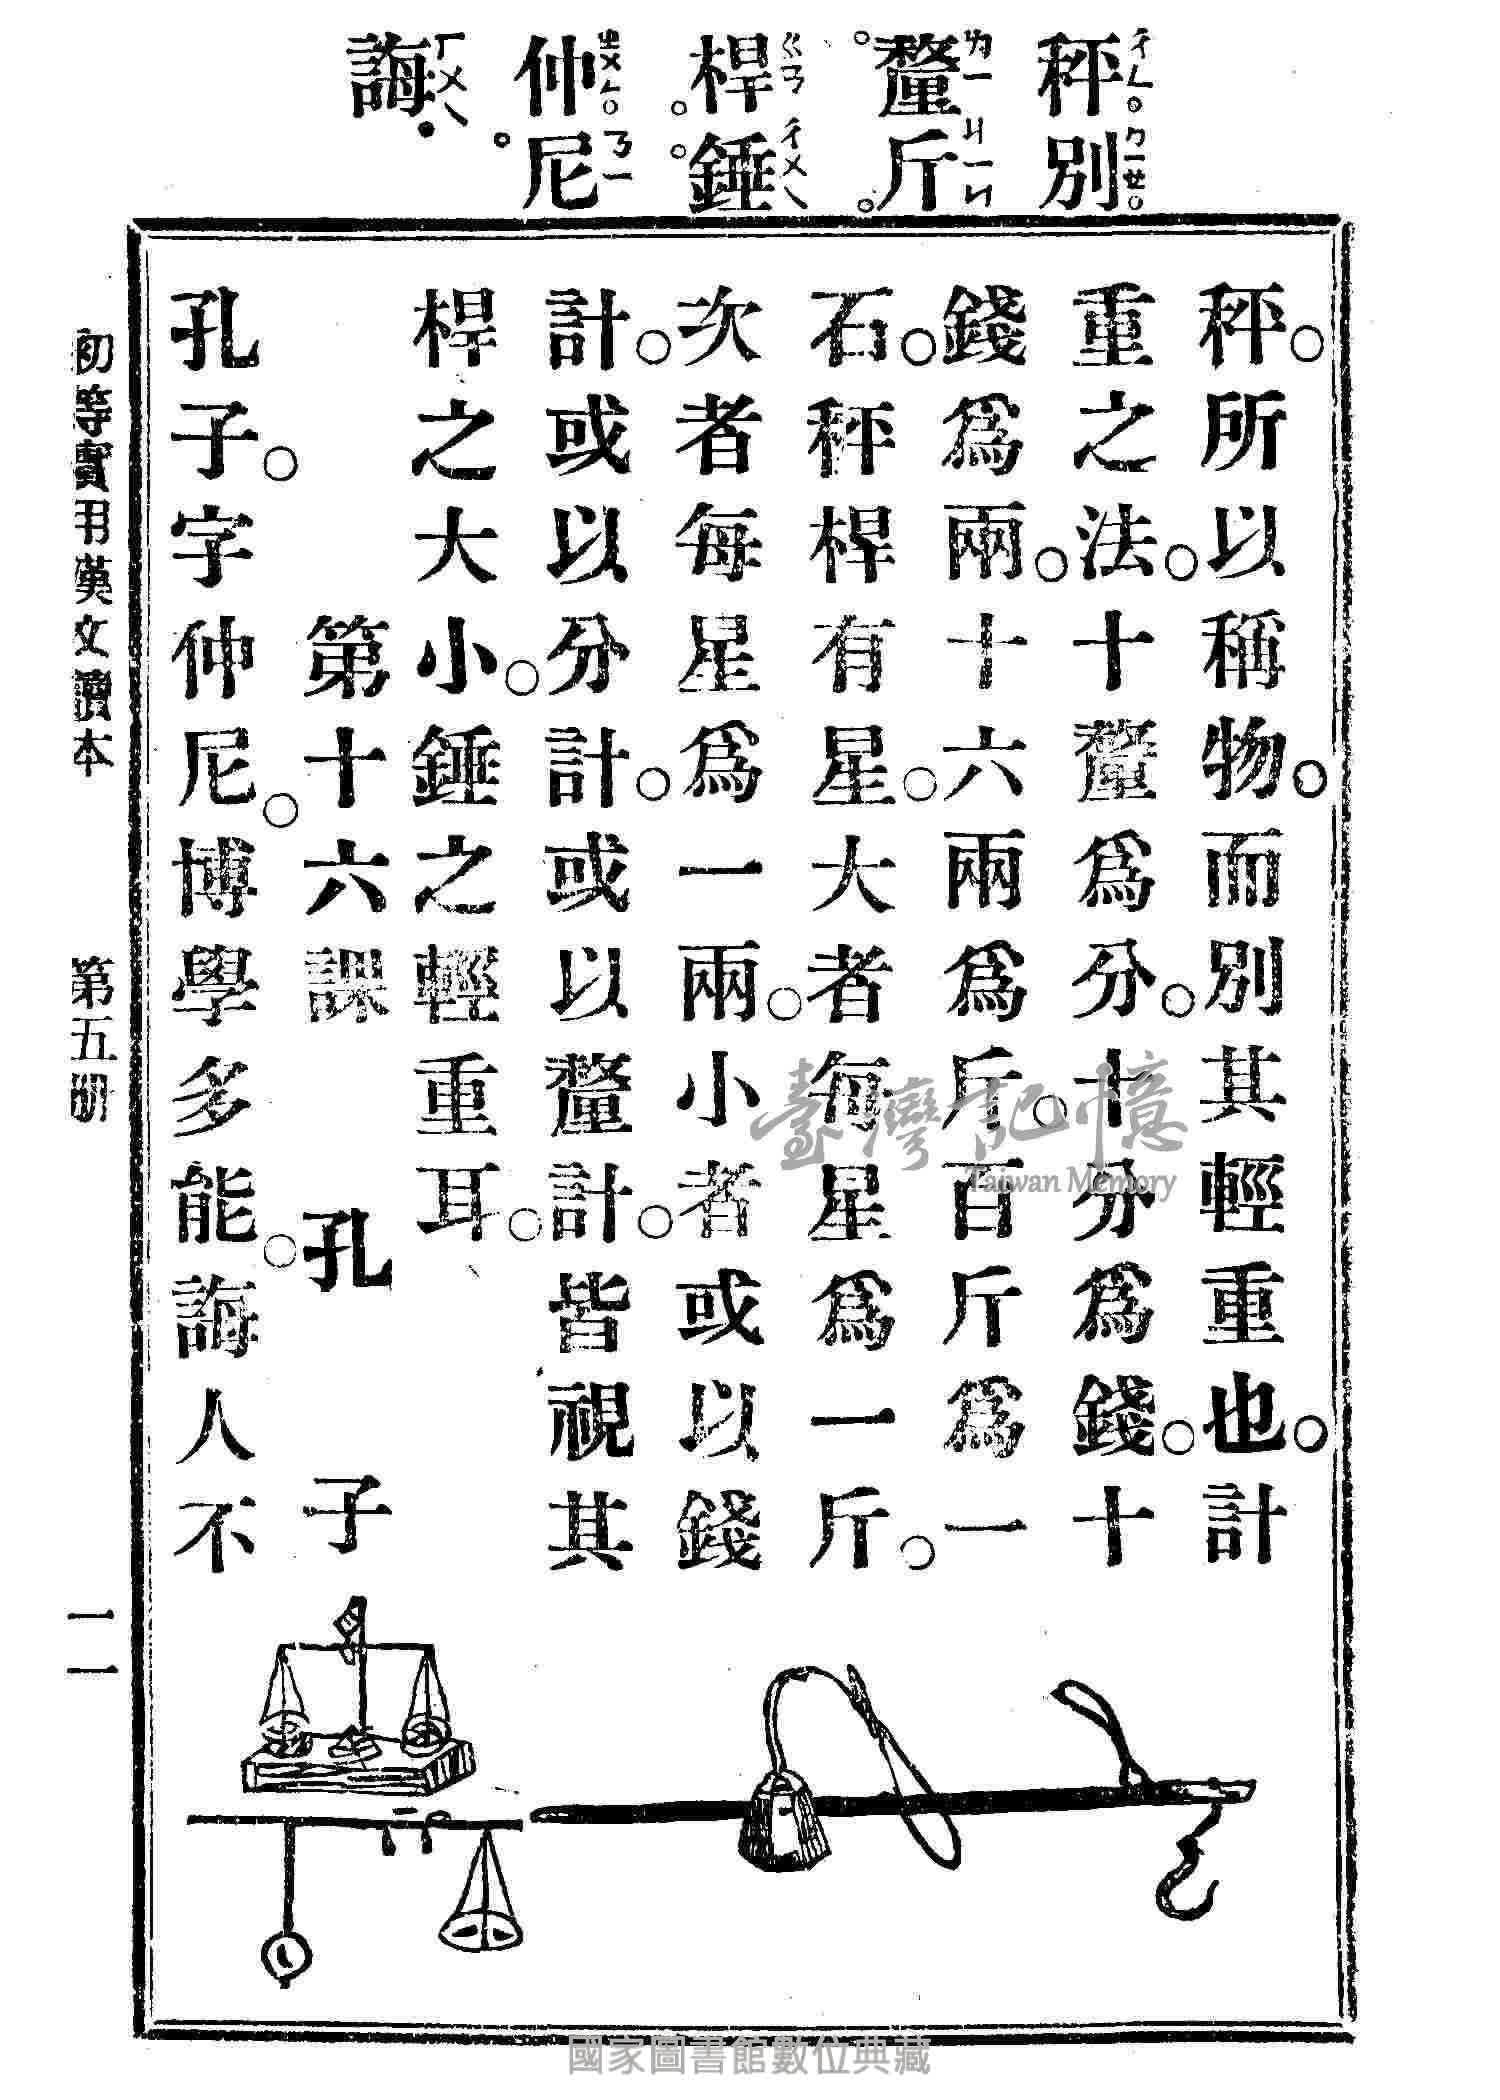 秤別
ㄔㄥ。ㄅㄧㄝ。
釐斤
ㄌㄧ ㄐㄧㄣ
桿錘
ㄍㄢ ㄔㄨㄟ
仲尼
ㄓㄨㄥ。ㄋㄧ
誨
ㄏㄨㄟ
秤。所以稱物。而別其輕重也。計
重之法。十釐爲分。十分爲錢。十
錢爲兩。十六兩爲斤。百斤爲一
石。秤桿有星。大者每星爲一斤。
次者每星爲一兩。小者或以錢
計。或以分計。或以釐計。皆視其
桿之大小。錘之輕重耳。
第十六課 孔子
孔子。字仲尼。博學多能。誨人不
初等實用漢文讀本 第五册 一一
臺灣記憶
Taiwan Memory
國家圖書館數位典藏